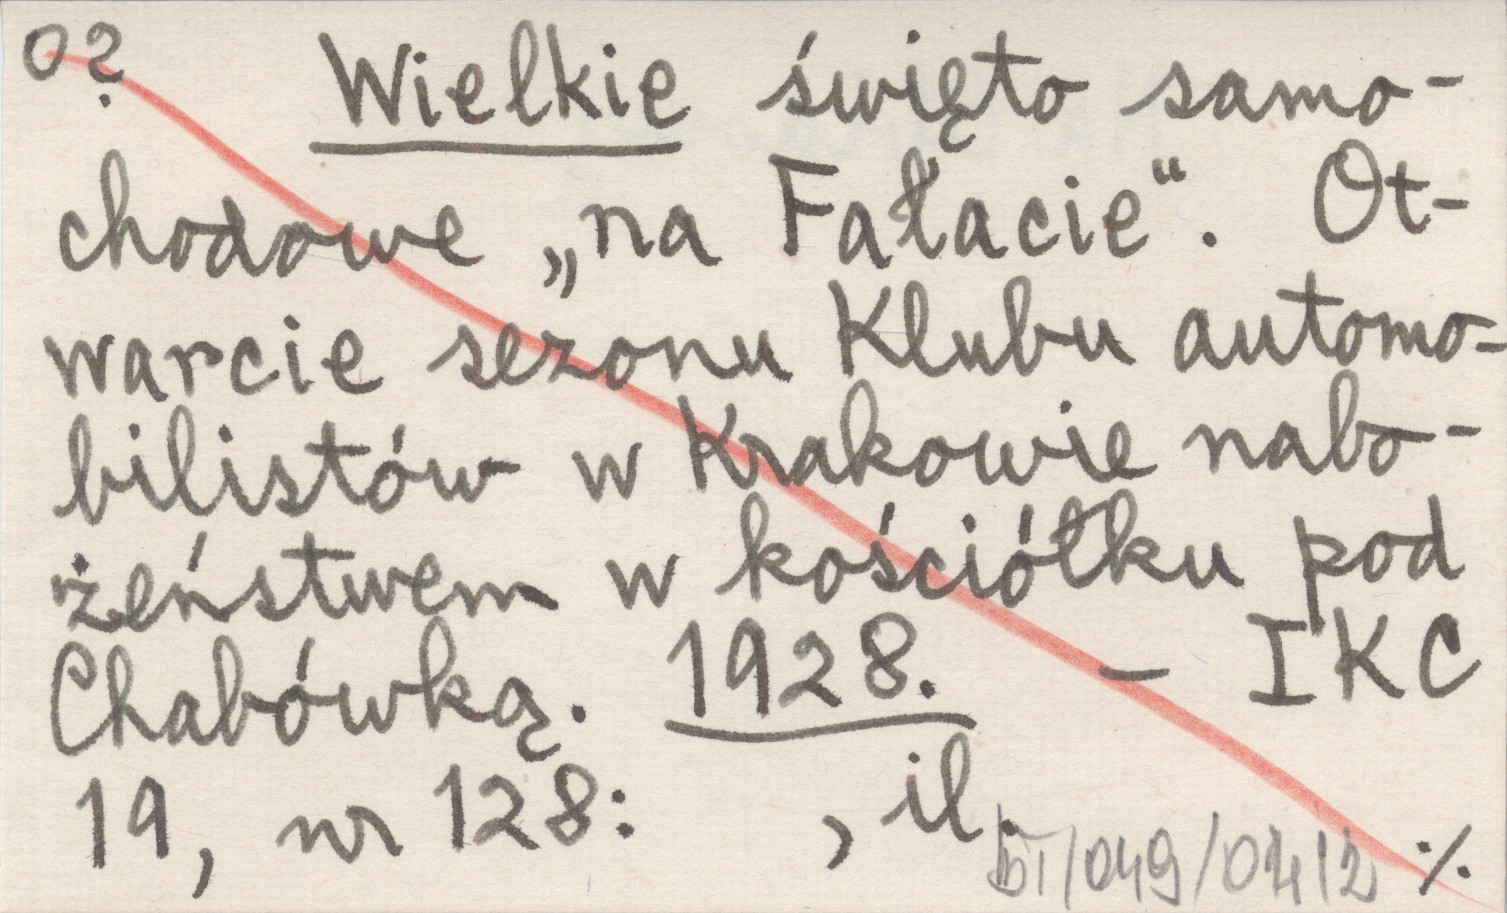 0? Wielkie święto samo-
chodowe „na Fałacie“. Ot-
warcie sezonu Klubu automo-
bilistów w Krakowie nabo-
żeństwem w kościółku pod
Chabówką. 1928. – IKC
19, nr 128: , il.
/049/ ./.